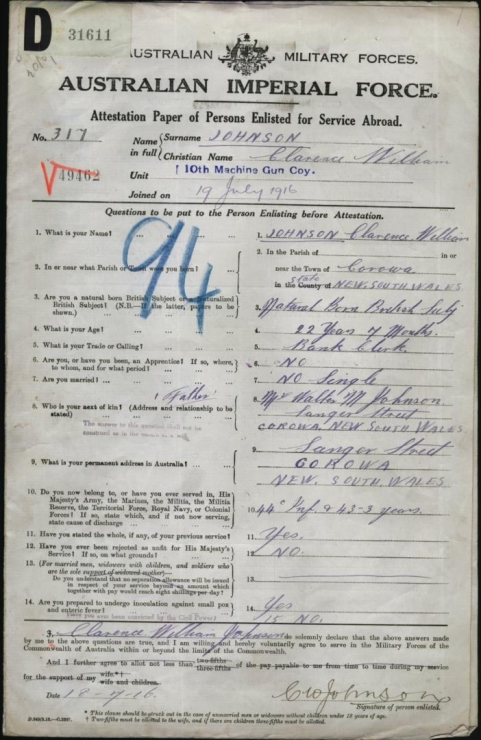 D 31611
AUSTRALIAN MILITARY FORCES.
AUSTRALIAN IMPERIAL FORCE.
Attestation Paper of Persons Enlisted for Service Abroad.
No. 317
Name in full { Surname JOHNSON
Christian Name Clarence William
V49462
Unit 10th Machine Gun Coy.
Joined on 19 July 1916
Questions to be put to the Person Enlisting before Attestation.
94
1. What is your Name? ... 1. JOHNSON Clarence William
2. In or near what Parish or Town were you born? ... 2. In the Parish of in or
near the Town of Corowa
in the County of State NEW SOUTH WALES
3. Are you a natural born British Subject or a Naturalized
British Subject? (N.B.—If the latter, papers to be
shown.) ... 3. Natural Born British Subj
4. What is your Age? ... 4. 22 Years 7 Months.
5. What is your Trade or Calling? ... 5. Bank Clerk.
6. Are you, or have you been, an Apprentice? If so, where,
to whom, and for what period? ... 6. NO
7. Are you married? ... 7. NO Single
8. Who is your next of kin? (Address and relationship to be
stated) Father 8. Mr Walter M. Johnson
Sanger Street
COROWA, NEW SOUTH WALES
The answer to this question shall not be
construed as in the nature of a will.
9. What is your permanent address in Australia? ... 9. Sanger Street
COROWA
NEW SOUTH WALES
10. Do you now belong to, or have you ever served in, His
Majesty's Army, the Marines, the Militia, the Militia
Reserve, the Territorial Force, Royal Navy, or Colonial
Forces? If so, state which, and if not now serving,
state cause of discharge ... 10. 44th Inf. & 43-3 years.
11. Have you stated the whole, if any, of your previous service? 11. Yes.
12. Have you ever been rejected as unfit for His Majesty's
Service? If so, on what grounds? ... 12. NO.
13. (For married men, widowers with children, and soldiers who
are the sole support of widowed mother)—
Do you understand that no separation allowance will be issued
in respect of your service beyond an amount which
together with pay would reach eight shillings per day? 13.
14. Are you prepared to undergo inoculation against small pox
and enteric fever? 14. Yes
Have you ever been convicted by the Civil Power? 15 NO.
I, Clarence William Johnson do solemnly declare that the above answers made
by me to the above questions are true, and I am willing and hereby voluntarily agree to serve in the Military Forces of the
Commonwealth of Australia within or beyond the limits of the Commonwealth.
And I further agree to allot not less than two-fifths three-fifths of the pay payable to me from time to time during my service
for the support of my wife* wife and children.
Date 18-7-16. CWJohnson
Signature of person enlisted.
* This clause should be struck out in the case of unmarried men or widowers without children under 18 years of age.
† Two-fifths must be allotted to the wife, and if there are children three-fifths must be allotted.